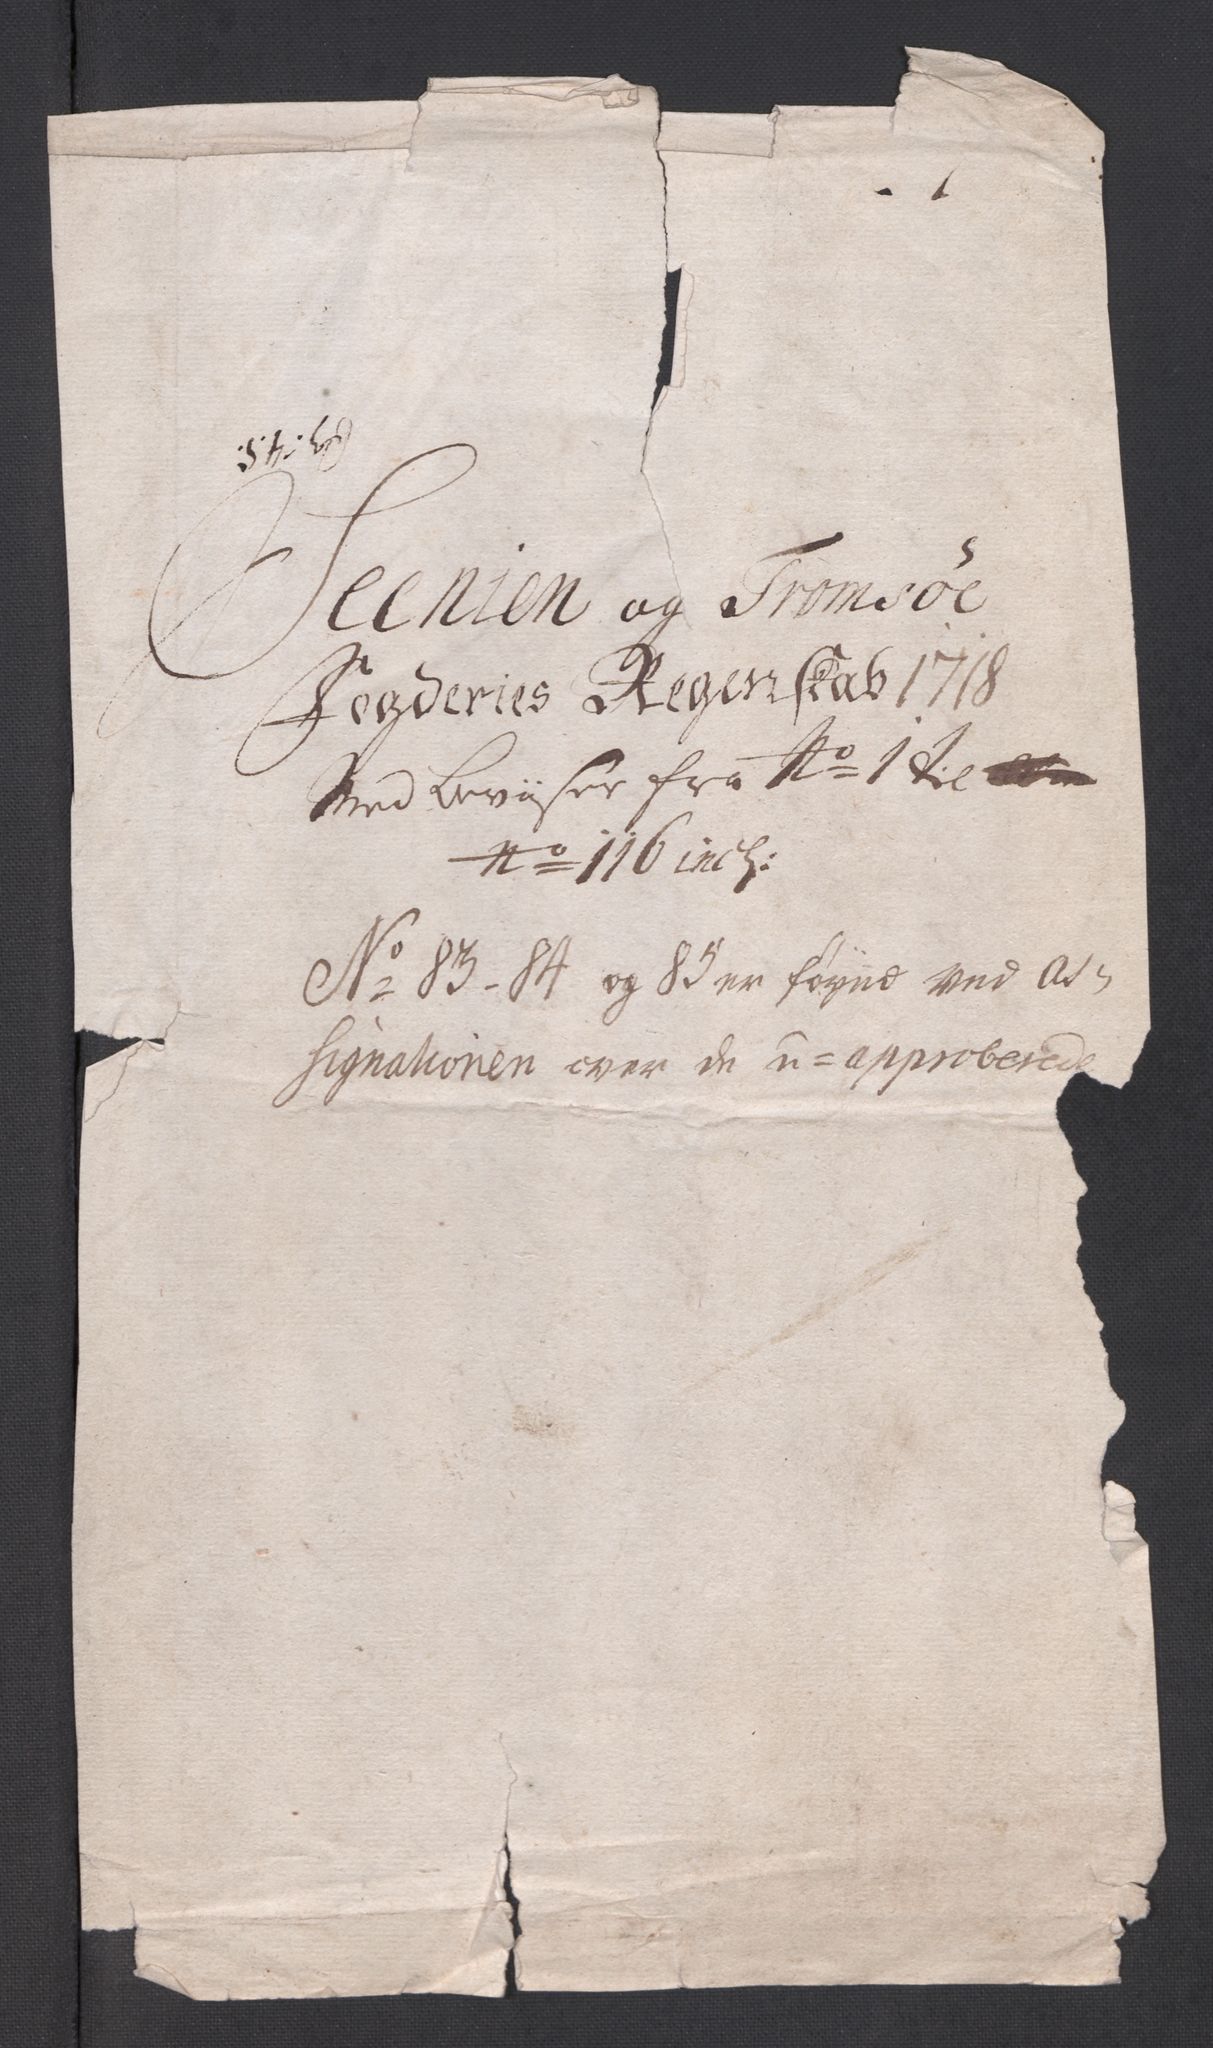 Seenien og Tromsöe
Fogderies Regenskab 1718
Med beviiser fra No 1 til
No 116 incl:
No 83 - 84 og 85 er föyed ved As=
signationen over de u=approberede